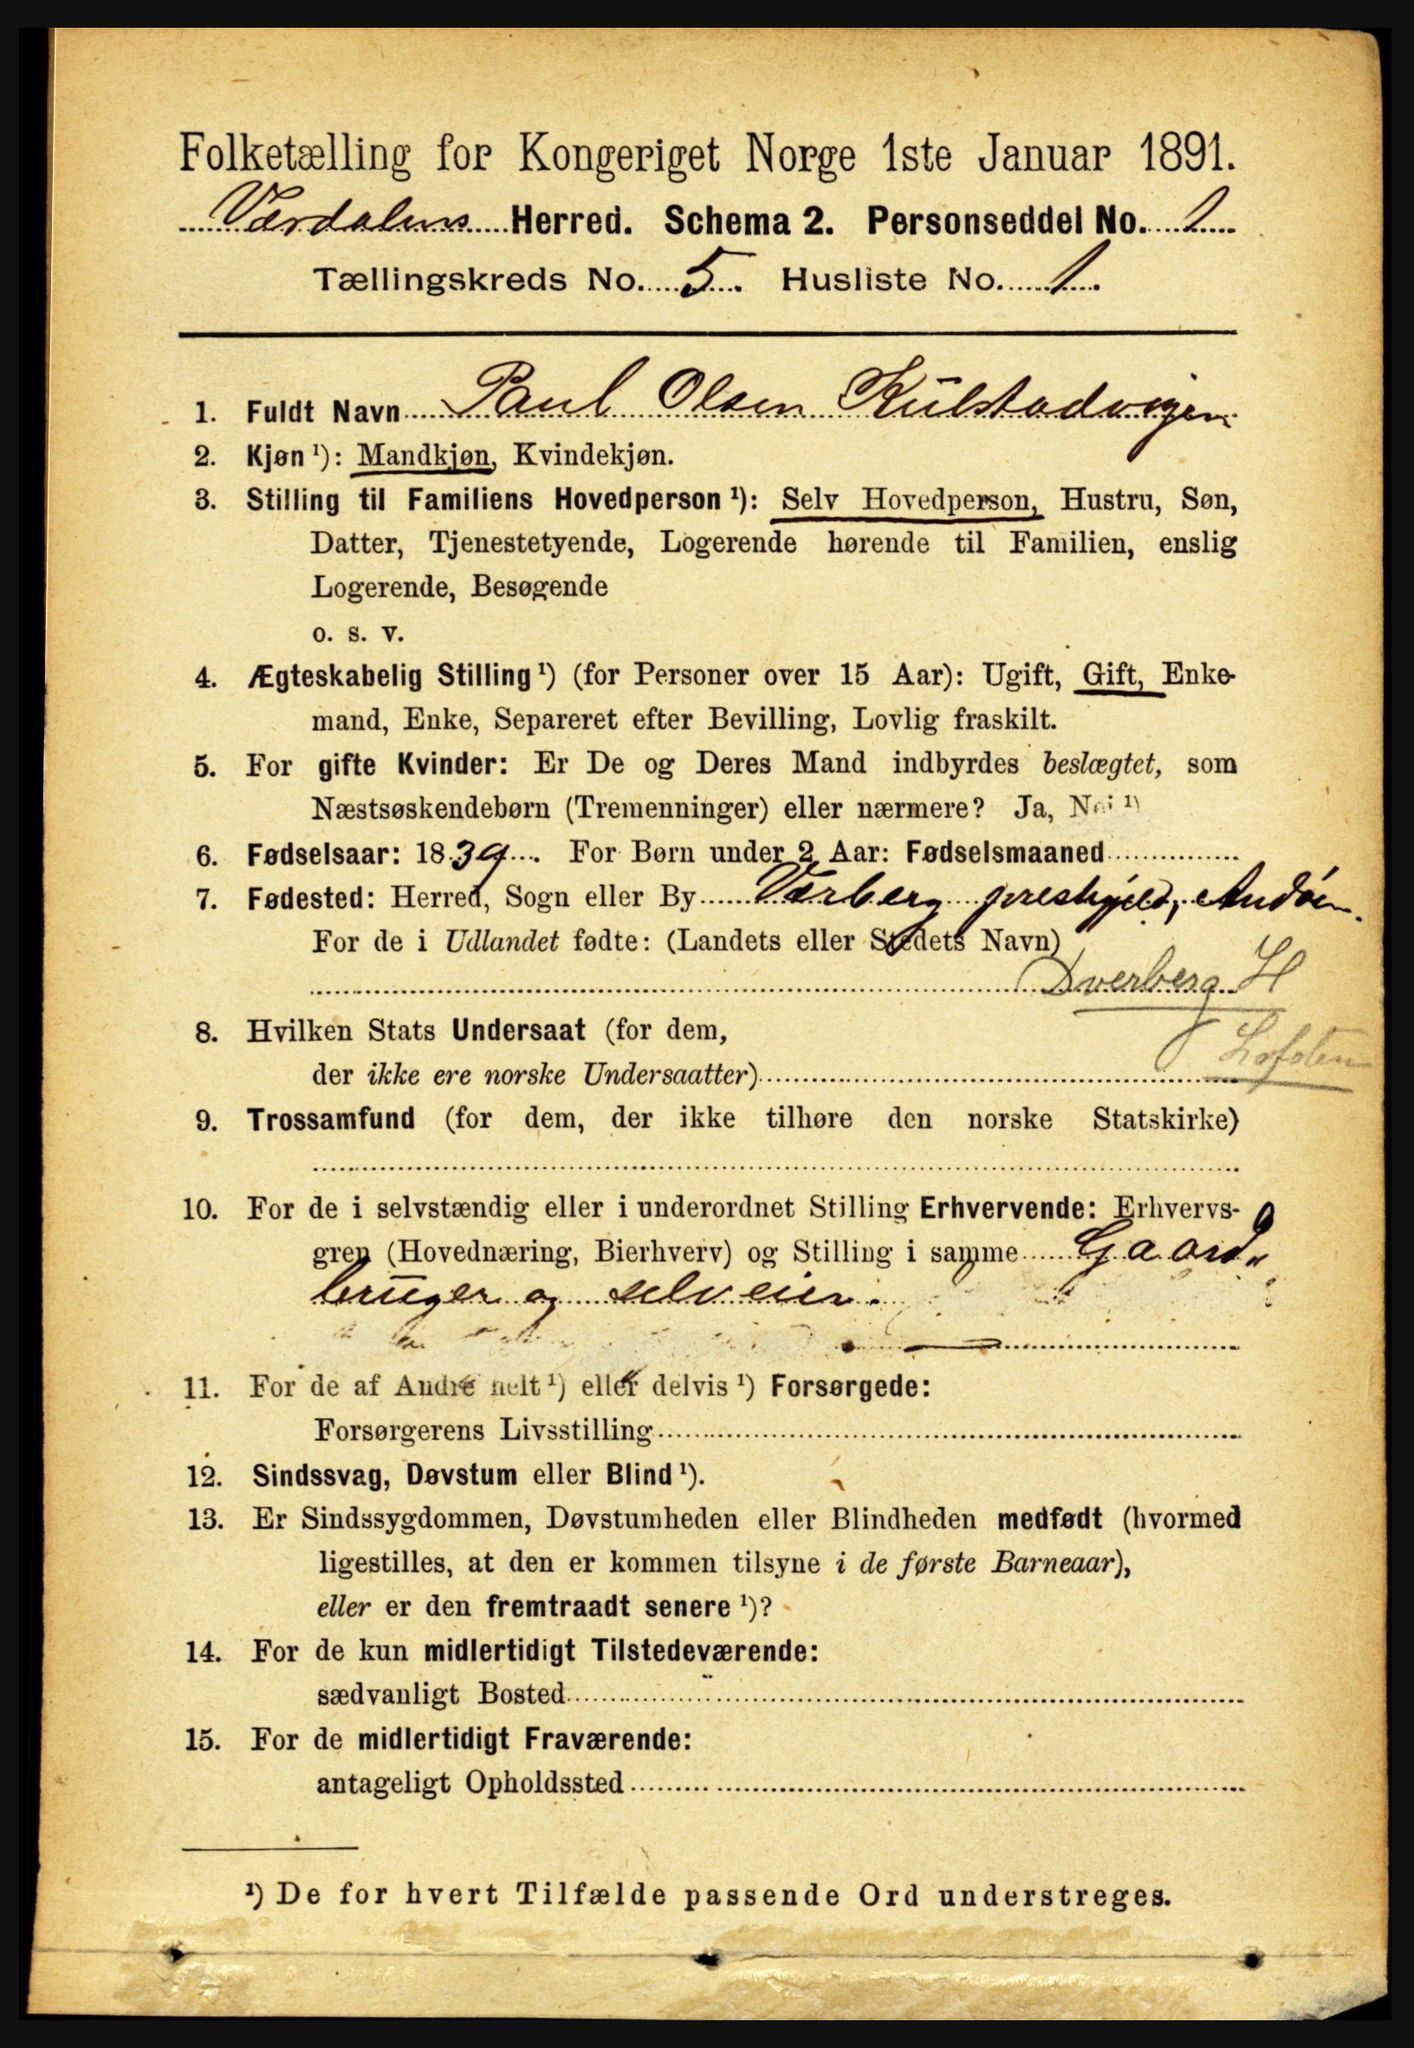 Folketælling for Kongeriget Norge 1ste Januar 1891.
Værdalens Herred. Schema 2. Personseddel No. 1
Tællingskreds No. 5. Husliste No. 1.
1. Fuldt Navn Paul Olsen Kulstadvigen
2. Kjøn ¹): Mandkjøn, Kvindekjøn.
3. Stilling til Familiens Hovedperson ¹): Selv Hovedperson, Hustru, Søn,
Datter, Tjenestetyende, Logerende hørende til Familien, enslig
Logerende, Besøgende
o. s. v.
4. Ægteskabelig Stilling ¹) (for Personer over 15 Aar): Ugift, Gift, Enke-
mand, Enke, Separeret efter Bevilling, Lovlig fraskilt.
5. For gifte Kvinder: Er De og Deres Mand indbyrdes beslægtet, som
Næstsøskendebørn (Tremenninger) eller nærmere? Ja, Nei ¹)
6. Fødselsaar: 1839. For Børn under 2 Aar: Fødselsmaaned
7. Fødested: Herred, Sogn eller By Værberg prestgjeld, Andöen.
For de i Udlandet fødte: (Landets eller Stedets Navn)
Dverberg H
8. Hvilken Stats Undersaat (for dem,
Lofoten
der ikke ere norske Undersaatter)
9. Trossamfund (for dem, der ikke tilhøre den norske Statskirke)
10. For de i selvstændig eller i underordnet Stilling Erhvervende: Erhvervs-
gren (Hovednæring, Bierhverv) og Stilling i samme Gaard
bruger og selveier.
11. For de af Andre helt ¹) eller delvis ¹) Forsørgede:
Forsørgerens Livsstilling
12. Sindssvag, Døvstum eller Blind ¹).
13. Er Sindssygdommen, Døvstumheden eller Blindheden medfødt (hvormed
ligestilles, at den er kommen tilsyne i de første Barneaar),
eller er den fremtraadt senere ¹)?
14. For de kun midlertidigt Tilstedeværende:
sædvanligt Bosted
15. For de midlertidigt Fraværende:
antageligt Opholdssted
¹) De for hvert Tilfælde passende Ord understreges.